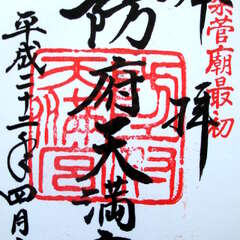 菅廟最初
拜
防府天満宮
防府
天満宮
平成二十二年四月